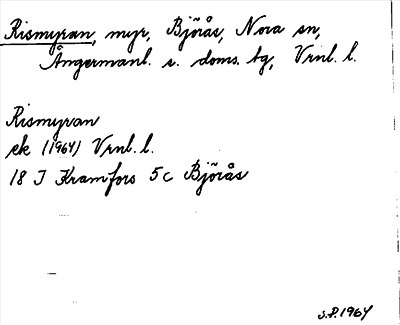 Rismyran, myr, Björås, Nora sn,
Ångermanl. s. doms. tg, Vrnl. l.
Rismyran
ek (1964) Vrnl. l.
18 I Kramfors 5c Björås
S.P. 1964